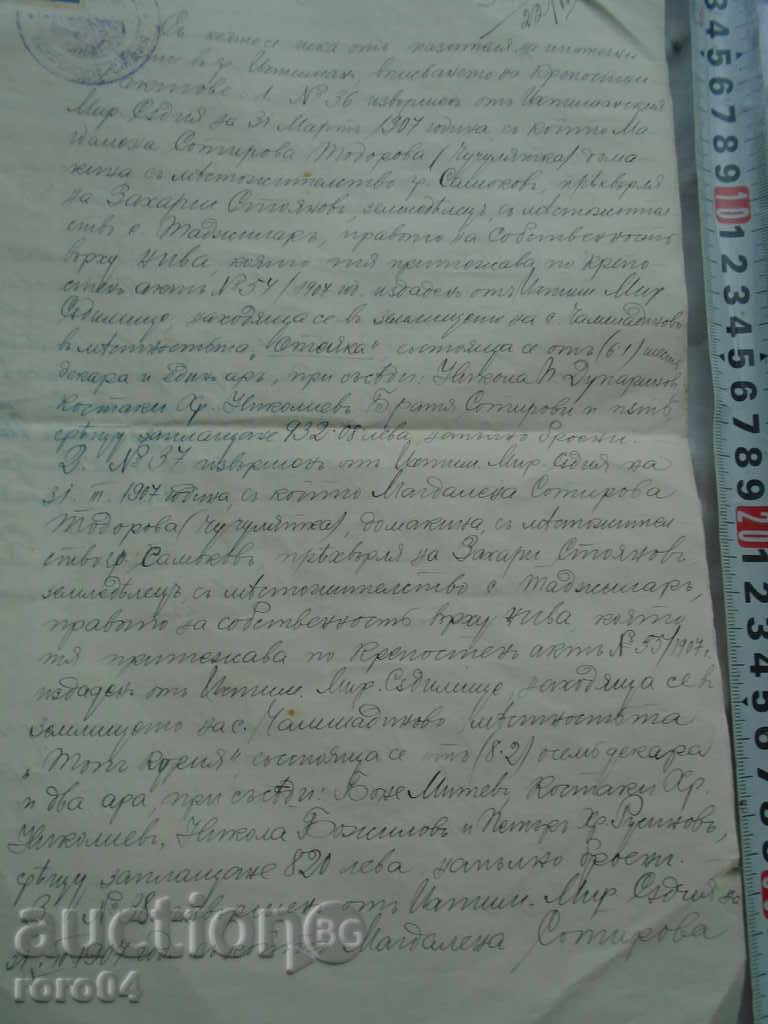 22/III
Въ
въ гр. Ихтиманъ, вписването на Крепостни
актове: 1. № 36 извършен отъ Ихтиманския
Мир. Съдия на 31 Мартъ 1907 година, съ който Ма-
гдалена Сотирова Тодорова (Чучулятка) дома-
кина съ мѣстожителство гр. Самоковъ, прѣхвърля
на Захари Стояновъ, земледѣлецъ, съ мѣстожител
ство с. Таджиларъ, правото на собственность
върху нива, която тя притежава по крепо
стенъ актъ № 54/1907 год. издаденъ отъ Ихтим. Мир.
Съдилище, находяща се въ землището на с. Чамшадиново
въ мѣстностьта "Стойка" състояща се отъ (6.1) шесть
декара и единъ аръ, при съсѣди: Никола П. Дупаринов
Костаки Хр. Николиевъ, Братя Сотирови и пѣтъ
срѣщу заплащане 932.08 лева напълно броени.
2. № 37 извършенъ отъ Ихтим. Мир. Съдия на
31. III. 1907 година, съ който Магдалена Сотирова
Тодорова (Чучулятка), домакина, съ мѣстожител
ство гр. Самоковъ, прѣхвърля на Захари Стояновъ
земледѣлецъ съ мѣстожителство с. Таджиларъ,
правото на собственность върху нива която
тя притежава по крепостенъ актъ № 55/1907 г.
издаден отъ Ихтим. Мир. Съдилище, находяща се въ
землището на с. Чамшадиново мѣстностьта
"Топъ кория" състояща се отъ (8.2) осемь декара
и два ара, при съсѣди: Боне Митевъ, Костаки Хр.
Николиевъ, Никола Божиловъ и Петъръ Хр. Русиновъ,
срѣщу заплащане 820 лева напълно броени.
3. № 38 извършен отъ Ихтим. Мир. Съдия на
31. III 1907 год. съ който Магдалена Сотирова
auction BG
roro04
3 4 5 6 7 8 9 10 1 2 3 4 5 6 7 8 9 20 1 2 3 4 5 6 7 8